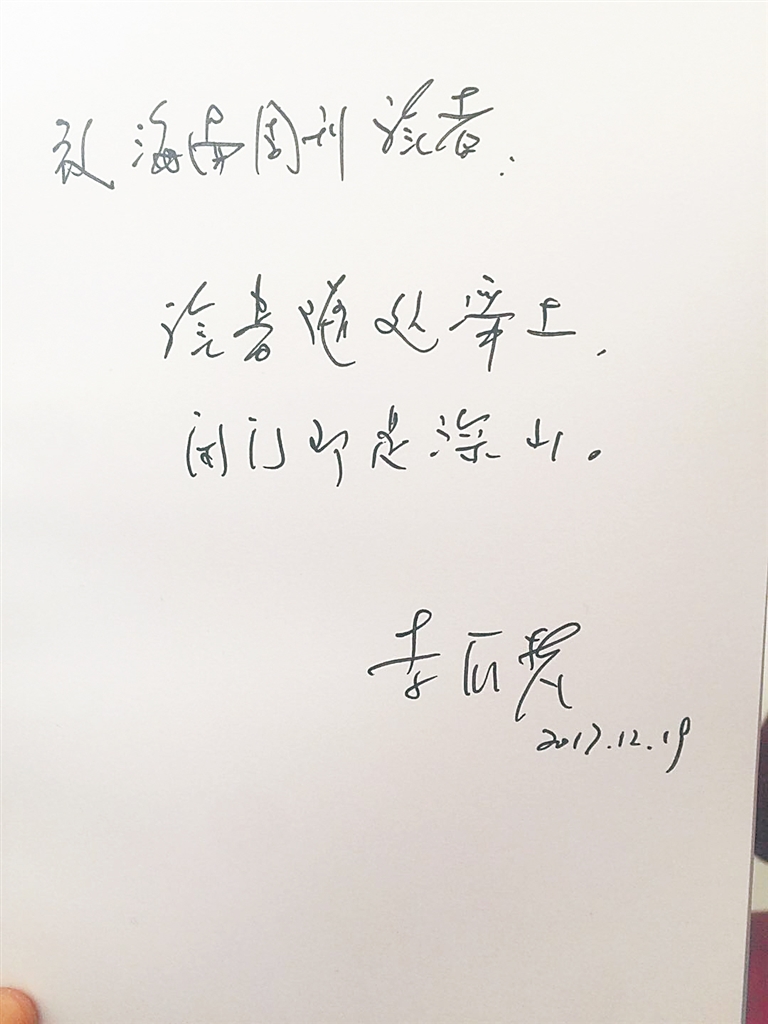 致海南周刊读者：
读书随处净土，
闭门即是深山。
李
2017.12.19